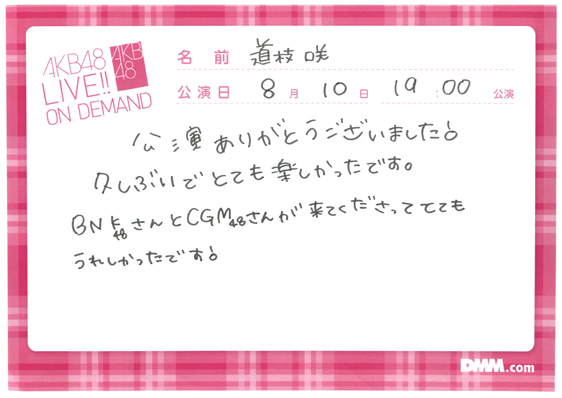 AKB48
LIVE!!
ON DEMAND
AKB
48
名前 道枝咲
公演日 8月10日 19:00 公演
公演ありがとうございました!
久しぶりでとても楽しかったです。
BNK48さんとCGM48さんが来てくださってとても
うれしかったです!
DMM.com